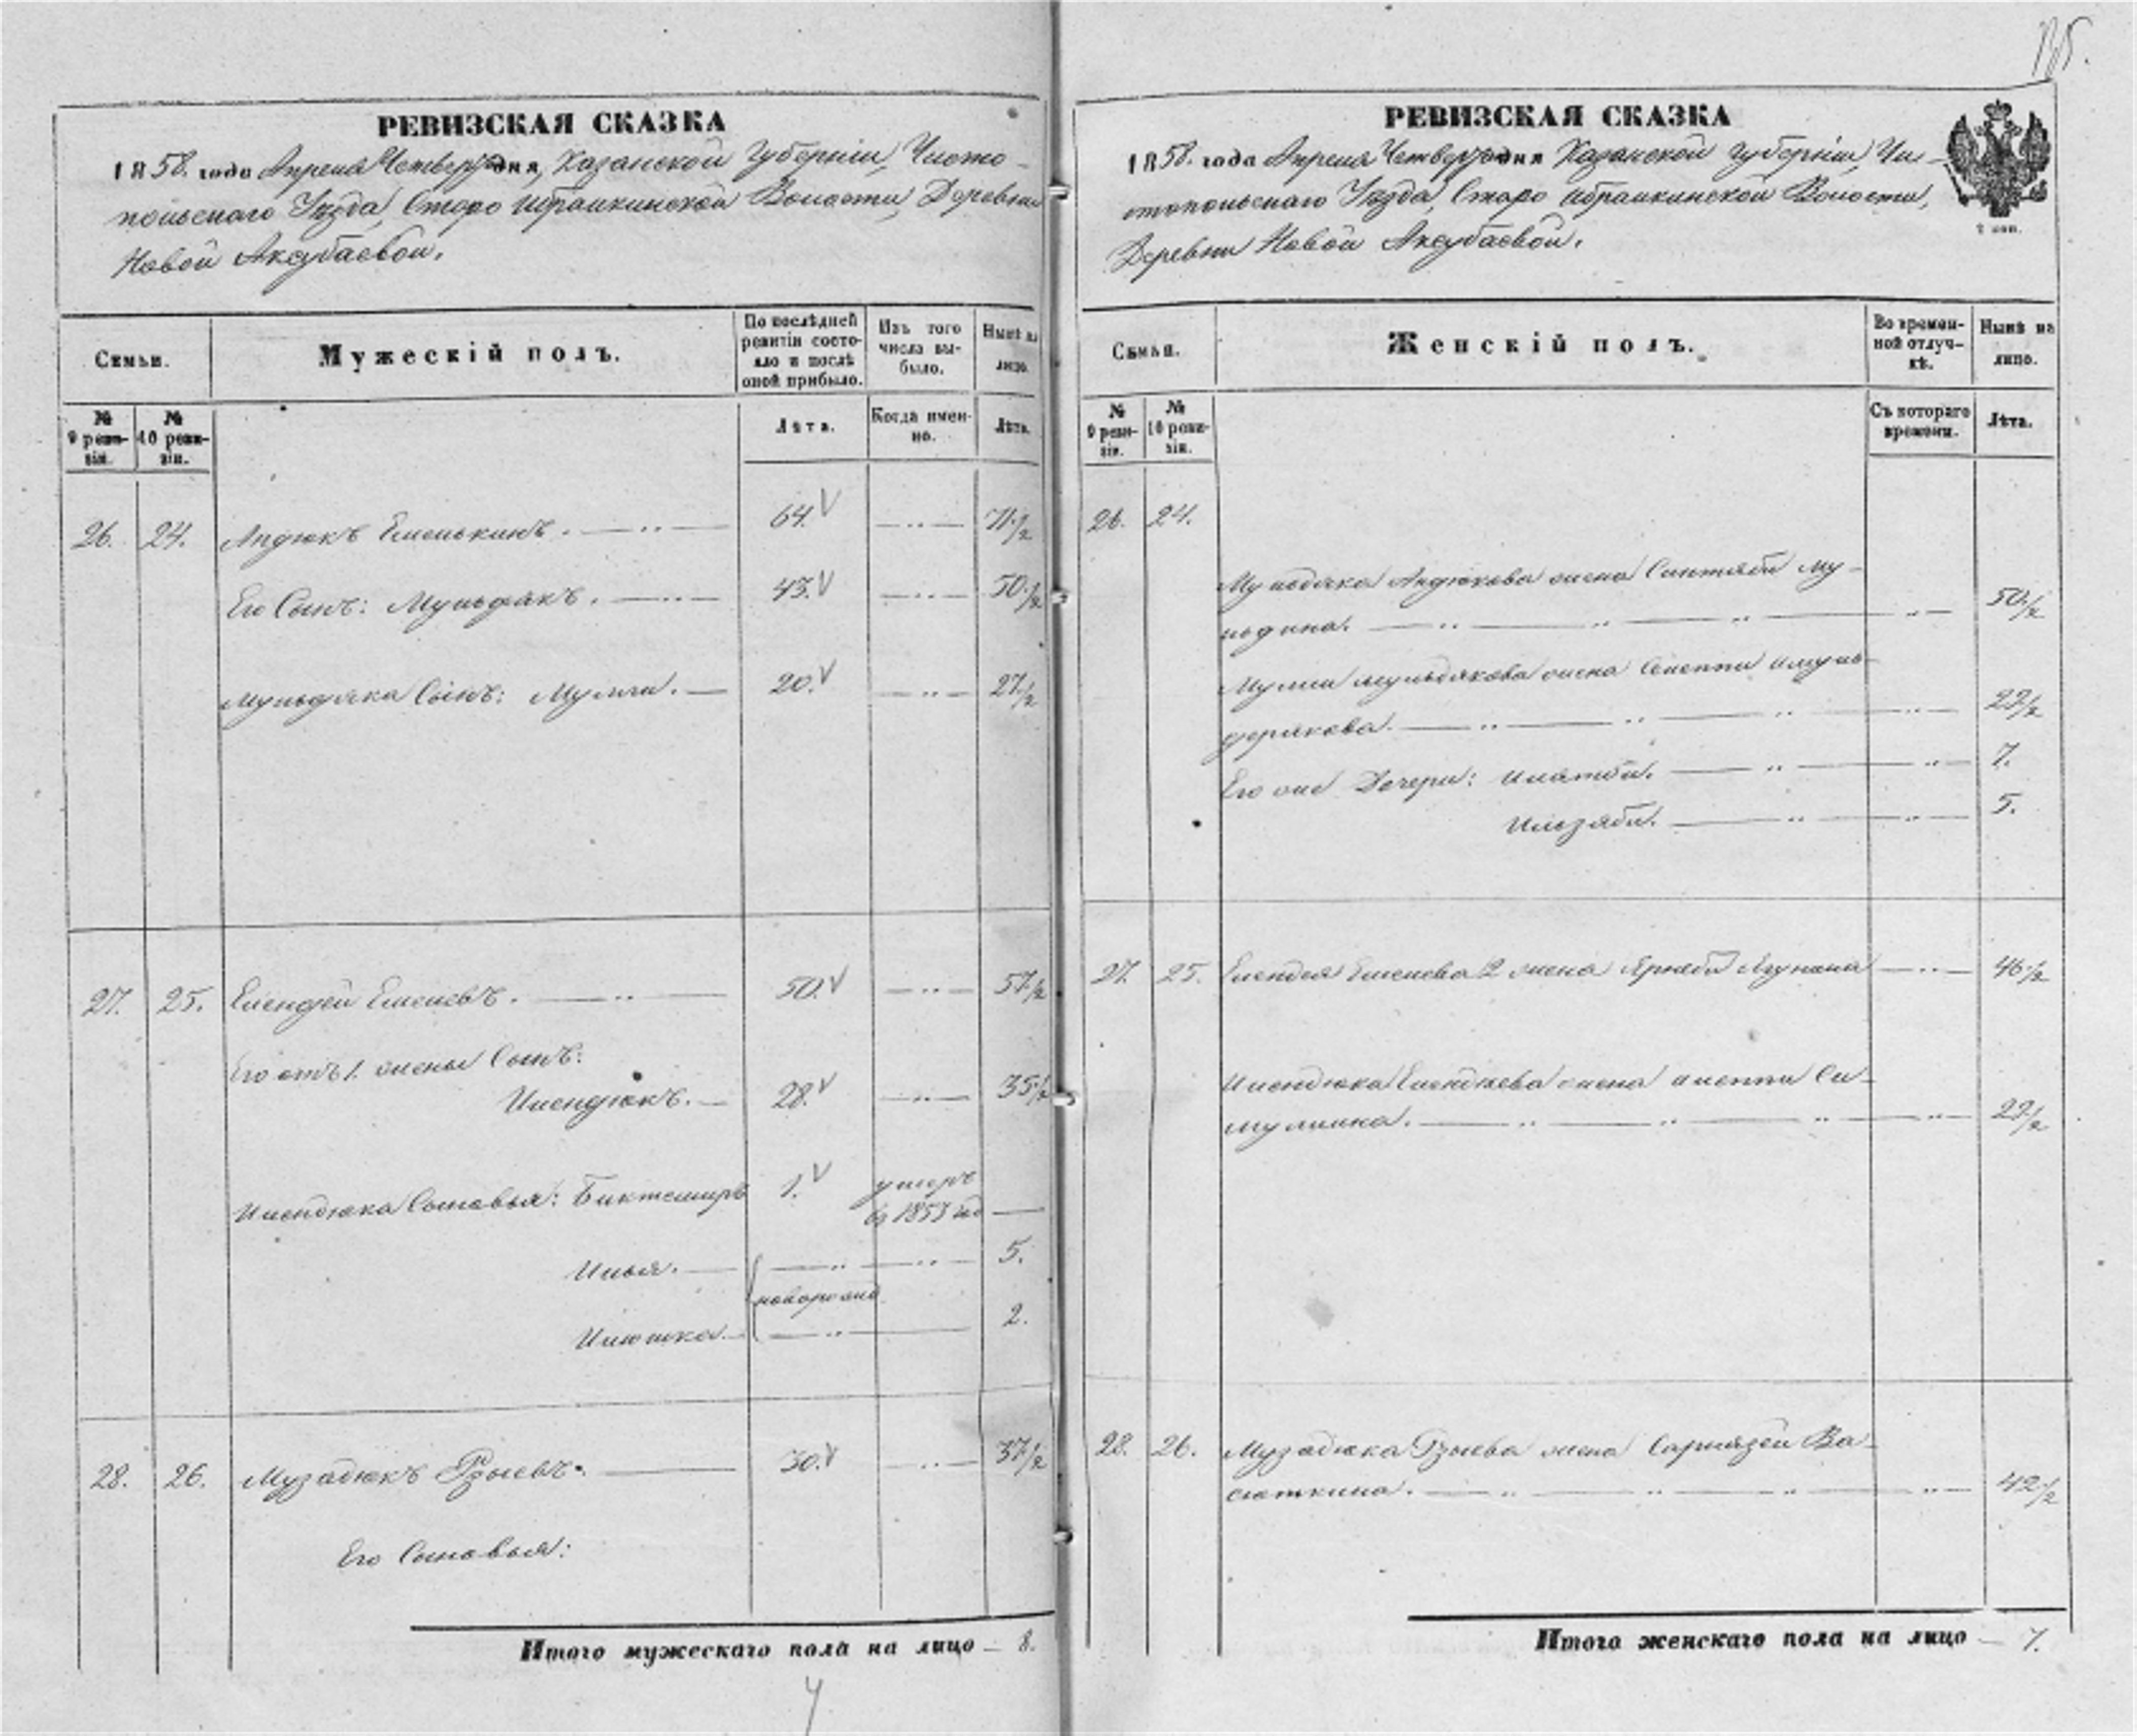 135.
РЕВИЗСКАЯ СКАЗКА
1858. года Апреля Четверт дня, Казанской Губерніи, Чисто-
польскаго Уѣзда, Старо Ибрайкинской Волости, Деревни
Новой Аксубаевой.
Семьи.
Мужескій полъ.
По послѣдней ревизіи состояло и послѣ оной прибыло.
Изъ того числа выбыло.
Нынѣ на лицо.
№ 9 ревизіи.
№ 10 ревизіи.
Лѣта.
Когда именно.
Лѣта.
26. 24. Андюкъ Еменькинъ. 64. 71 1/2
Его Сынъ: Мульдякъ. 43. 50 1/2
Мульдяка Сынъ: Мулли. 20. 27 1/2
27. 25. Елендей Емелевъ. 50. 57 1/2
Его отъ 1. жены Сынъ:
Илендюкъ. 28. 35 1/2
Илендюка Сыновья: Биктемиръ 1. умеръ
въ 1853 год
Илья. 5.
новорожд
Илюшка. 2.
28. 26. Музадюкъ Рзыевъ. 30. 37 1/2
Его Сыновья:
Итого мужескаго пола на лицо 8.
РЕВИЗСКАЯ СКАЗКА
1858. года Апреля Четверт дня Казанской Губерніи, Чи-
стопольскаго Уѣзда, Старо Ибрайкинской Волости,
Деревни Новой Аксубаевой.
2 коп.
Семьи.
Женскій полъ.
Во временной отлучкѣ.
Нынѣ на лицо.
№ 9 ревизіи.
№ 10 ревизіи.
Съ котораго времени.
Лѣта.
26. 24.
Мульдяка Андюкова жена Синтяби Му-
льдина. 50 1/2
Мулли Мульдякова жена
22 1/2
Его же Дочери: Илатби. 7.
Ильзяби. 5.
27. 25. Елендея Емелева 2 жена Ярняби 46 1/2
Илендюка Елендеева жена
22 1/2
28. 26. Музадюка Рзыева жена Сарнязей Ва-
сюткина. 42 1/2
Итого женскаго пола на лицо 7.